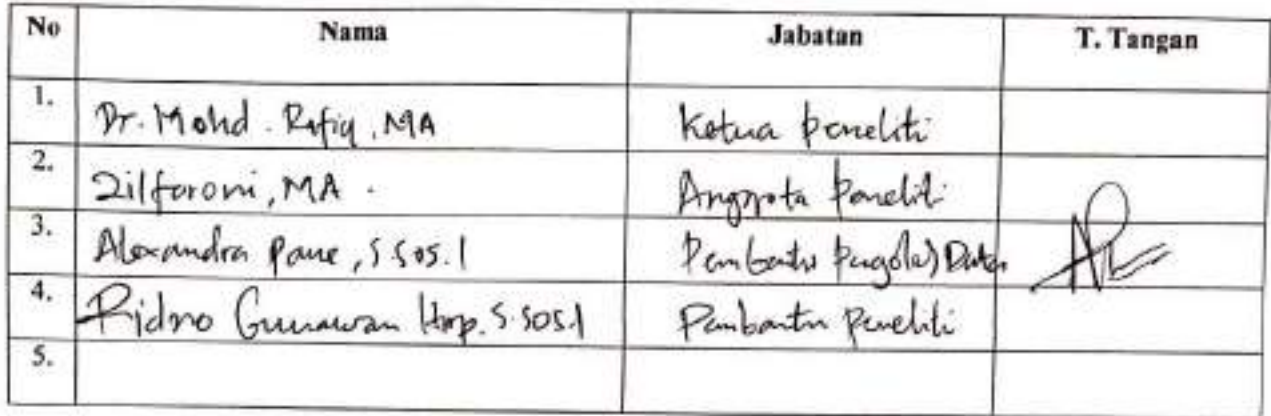 No Nama Jabatan T. Tangan
1. Dr. Mohd. Rafiq, MA Ketua peneliti
2. Zilfaroni, MA. Anggota Peneliti
3. Alexandra Pane, S.Sos.I Pembantu Data
4. Gunawan Hrp. S.SOS.I Pembantu Peneliti
5.